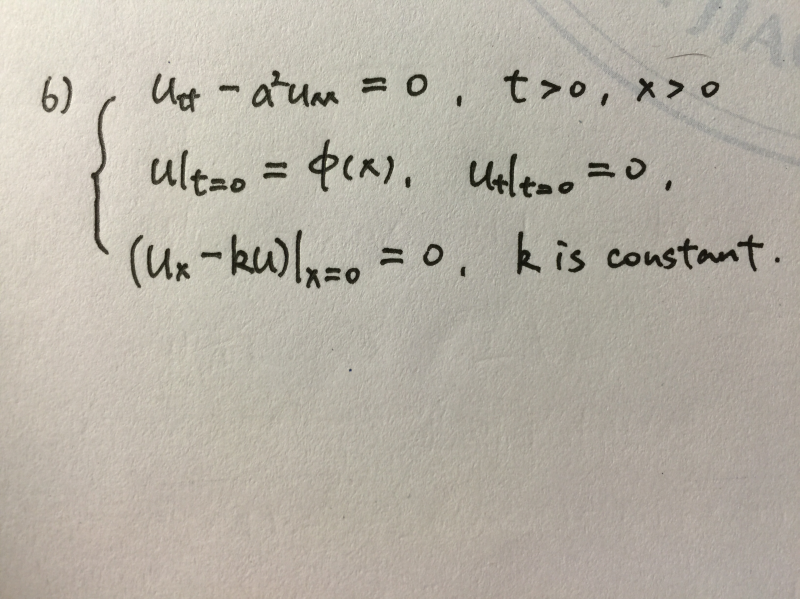 6) { u_tt - a²u_xx = 0, t>0, x>0
u|t=0 = φ(x), u_t|t=0 = 0,
(u_x - ku)|x=0 = 0, k is constant.